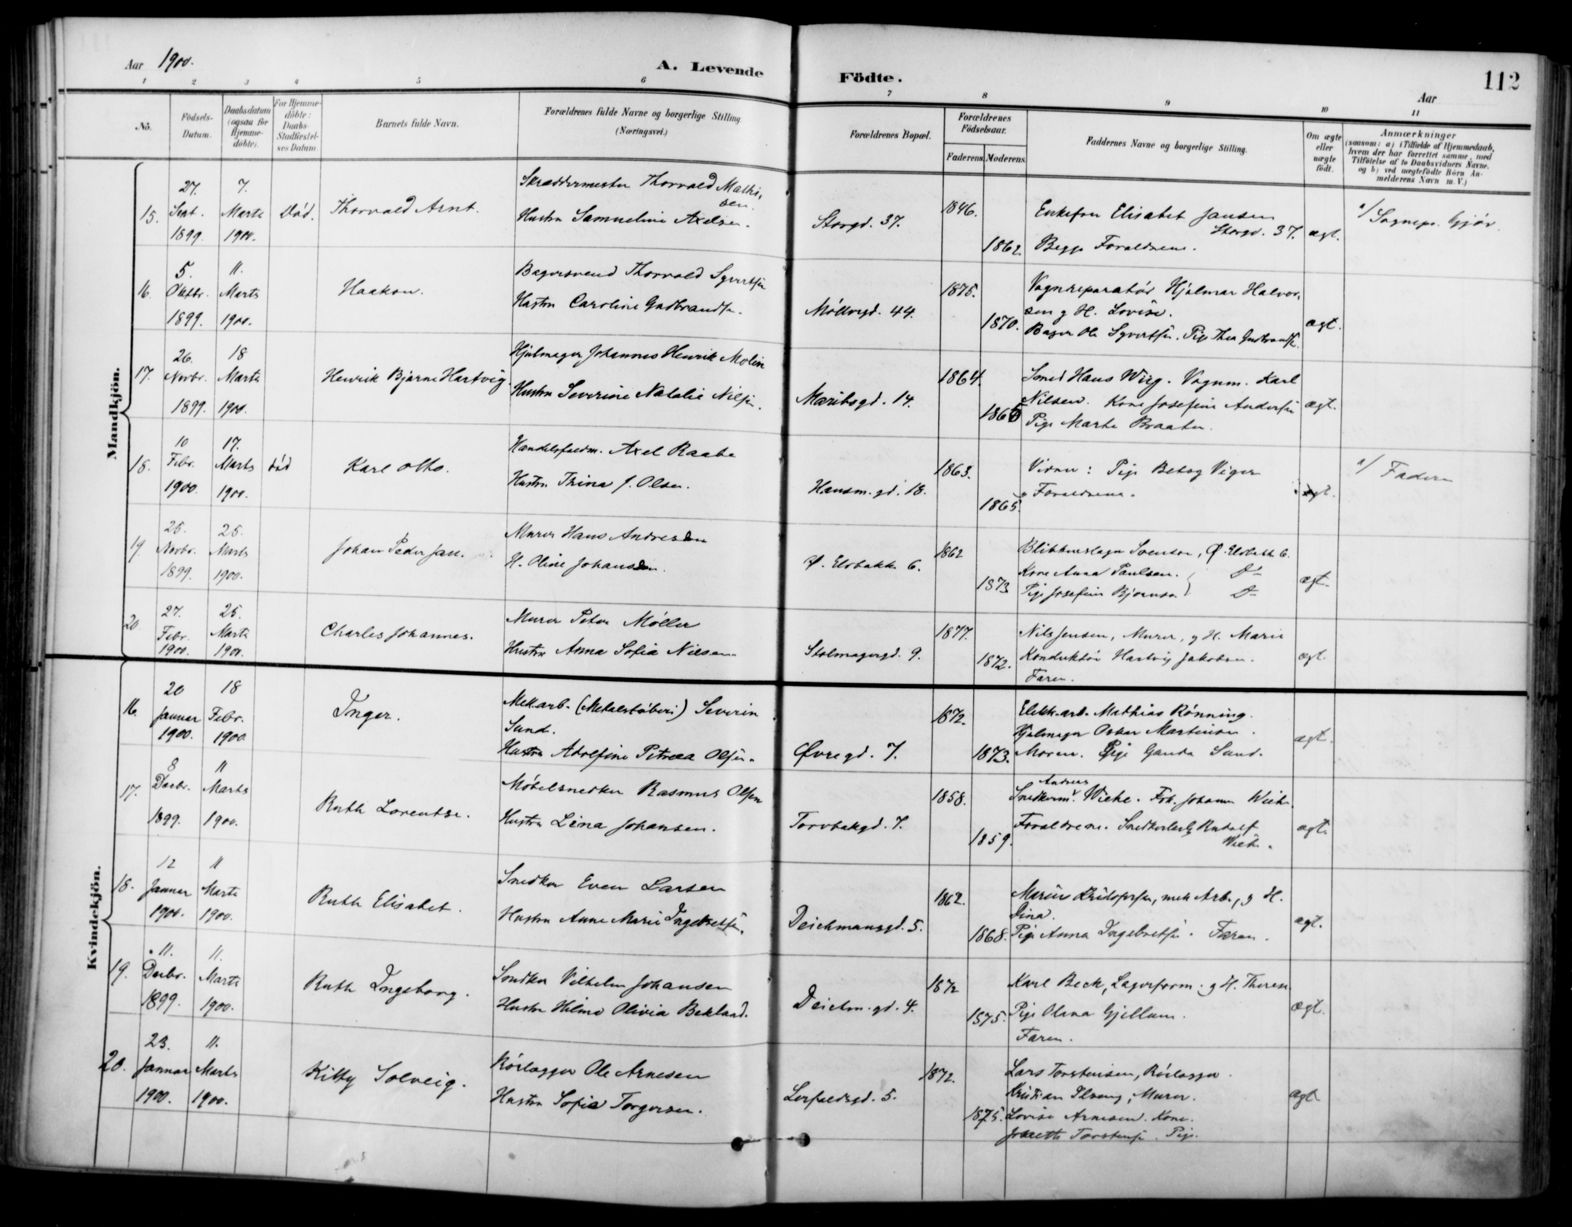 Aar 1900.
A. Levende Födte.
112
Aar
1 2 3 4 5 6 7 8 9 10 11
No.
Födsels-Datum.
Daabsdatum (ogsaa for Hjemme-döbte).
For Hjemme-döbte: Daabs-Stadfæstel-ses Datum.
Barnets fulde Navn.
Forældrenes fulde Navne og borgerlige Stilling (Næringsvei.)
Forældrenes Bopæl.
Forældrenes Födselsaar.
Faderens. Moderens.
Faddernes Navne og borgerlige Stilling.
Om ægte eller uægte födt.
Anmærkninger
(saasom: a) i Tilfælde af Hjemmedaab, hvem der har forrettet samme, med Tilföielse af to Daabsvidners Navne. og b) ved uægtefödte Börn An-melderens Navn m. V.)
Mandkjön.
15. 27. Sept. 1899. 7. Marts 1900. Död. Thorvald Arnt.
Skræddermester Thorvald Mathi-sen.
Hustru Samueline Axelsen.
Storgd. 37. 1846. 1862.
Enkefru Elisabet Jansen Storgd. 37.
Begge Forældrene.
ægt. a/ Sognepr. Gjör.
16. 5. Oktbr. 1899. 11. Marts 1900. Haakon.
Bagersvend Thorvald Syvertsen
Hustru Caroline Gudbrandsen.
Möllergd. 44. 1875. 1870.
Vognreparatör Hjalmar Halvor-
sen g H. Lovise.
Bager Ole Syvertsen. Pige Thea Gudbrandsen.
ægt.
17. 26. Novbr. 1899. 18 Marts 1900. Henrik Bjarne Hartvig.
Hjulmager Johannes Henrik Molin
Hustru Severine Natalie Nilsen.
Maribogd. 14. 1864. 1865
Smed Hans Wiig. Vognm. Karl
Nilsen. Kone Josefine Andersen
Pige Marte Braaten.
ægt.
18. 10 Febr. 1900. 17. Marts 1900. död Karl Otto.
Handelsfuldm. Axel Raabe
Hustru Trina J. Olsen.
Hausm. gd. 18. 1863. 1865.
Vidner: Pige Betsy Viger
Forældrene.
ægt. a/ Faderen
19 25. Novbr. 1899. 25. Marts 1900. Johan Peder Jan.
Murer Hans Andresen
H. Oline Johansen.
Ø. Elvbakke 6. 1862 1873
Blikkenslager Svensen, Ø. Elvbakke 6.
Kone Anna Paulsen. Do
Pige Josefine Bjørnsen Do
ægt.
20 27. Febr. 1900. 25. Marts 1900. Charles Johannes.
Murer Peter Möller
Hustru Anna Sofie Nielsen
Stolmagergd. 9. 1877. 1872.
Nils Jensen, Murer, g H. Marie
Konduktör Hartvig Jakobsen.
Faren.
ægt.
Kvindekjön.
16. 20 Januar 1900. 18 Febr. 1900 Inger.
Mek.arb. (Metalstöberi) Severin
Sund.
Hustru Adolfine Petrea Olsen.
Övregd. 7. 1872. 1873.
Elektr.arb. Mathias Rönning.
Hjulmager Oskar Martinsen.
Moren. Pige Ganda Sund.
ægt.
17. 8 Decbr. 1899. 11 Marts 1900. Ruth Lorentse.
Möbelsnedker Rasmus Olsen
Hustru Lina Johansen.
Torvbakgd. 7. 1858. 1859.
Snedkerm. Andreas Wiehe. Frk. Johanne Wiehe.
Forældrene. Snedkerlærl. Rudolf
Wiehe.
ægt.
18. 12 Januar 1900. 11 Marts 1900. Ruth Elisabet.
Snedker Even Larsen
Hustru Anne Marie Ingebretsen.
Deichmansgd. 5. 1862. 1868.
Marius Kristofersen, mek Arb., g H.
Dina.
Pige Anna Ingebretsen. Faren.
ægt.
19. 11. Decbr. 1899. 11. Marts 1900. Ruth Ingeborg.
Snedker Vilhelm Johansen
Hustru Hilma Olivia Beklund.
Deichm. gd. 4. 1872 1875.
Karl Beck, Lagerform. g H. Therese
Pige Olava Gjellum.
Faren.
ægt.
20. 23. Januar 1900. 11. Marts 1900. Kitty Solveig.
Rörlægger Ole Arnesen
Hustru Sofie Torgersen.
Lerfaldsgd. 5. 1872. 1875.
Lars Torstensen, Rörlægger.
Kristian Strøm, Murer.
Lovise Arnesen Kone.
Josette Torstensen. Pige.
ægt.